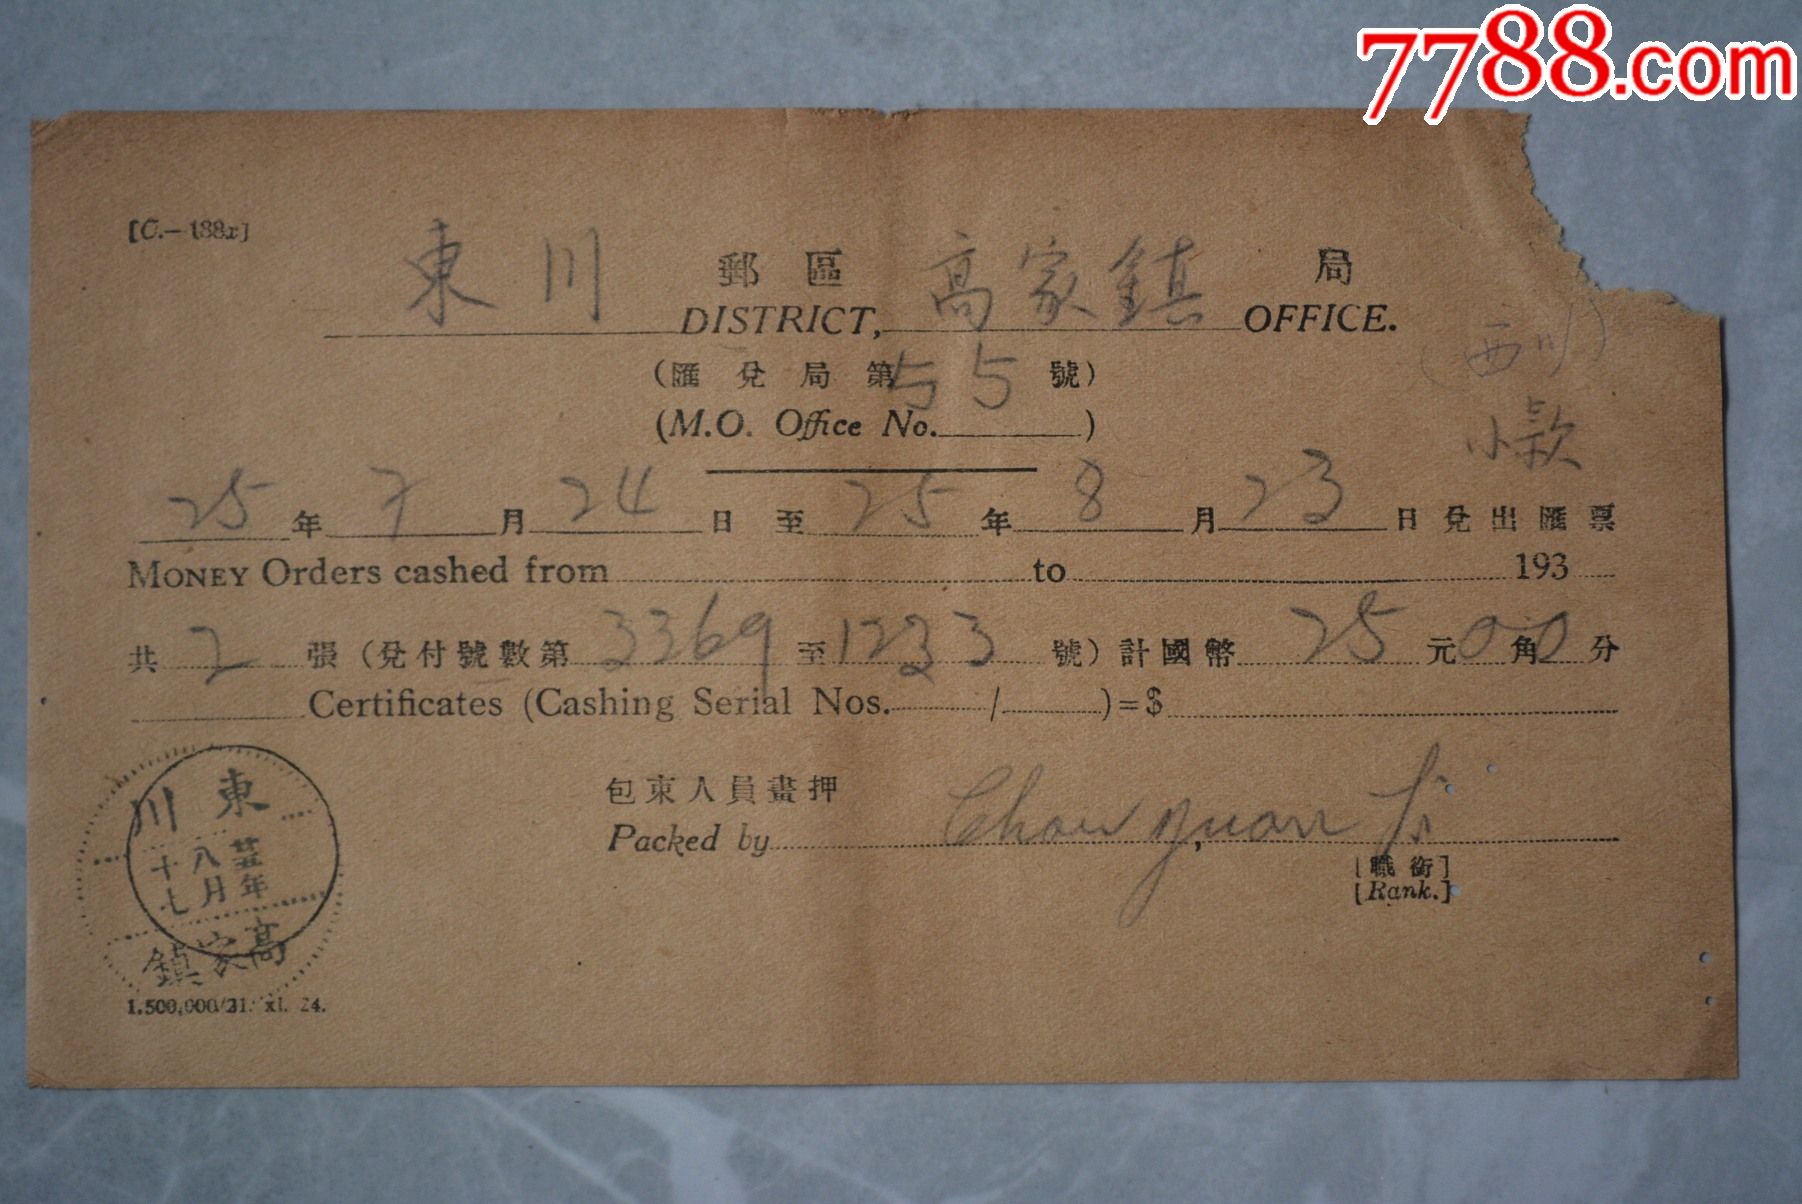 7788.com
[C.—188x]
東川 郵區 高家鎮 局
DISTRICT, OFFICE.
(西川)
(匯兌局第55號)
(M.O. Office No. )
小款
25年7月24日至25年8月23日兌出匯票
MONEY Orders cashed from to 193
共2張(兌付號數第3369至1233號)計國幣25元0角0分
Certificates (Cashing Serial Nos. / )=$
包束人員畫押
Packed by Chow yuan
[職銜]
[Rank.]
東川
廿五年八月十七
高家鎮
1.500,000/21. xi. 24.